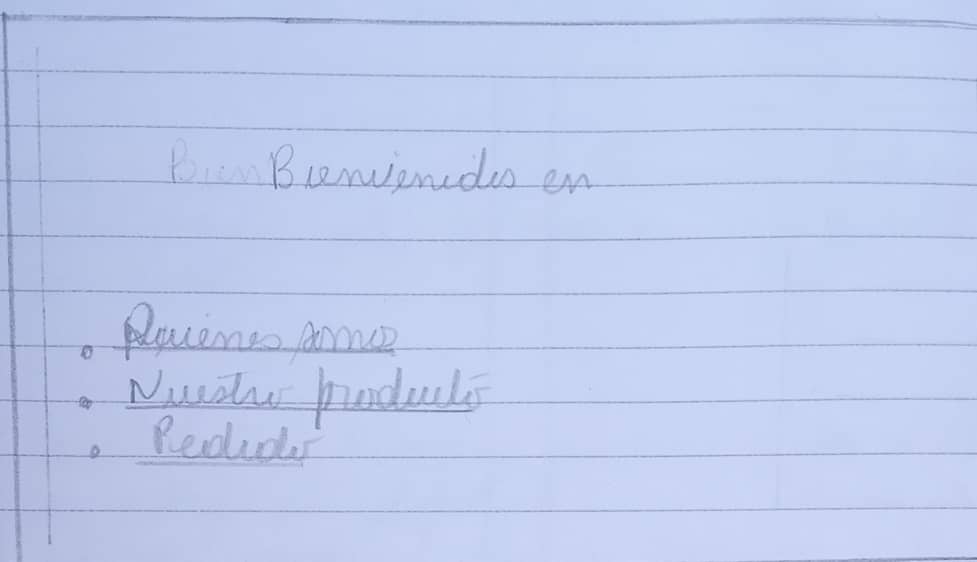 Bien Bienvienidos en
Quienes somos
Nuestro producto
Pedido